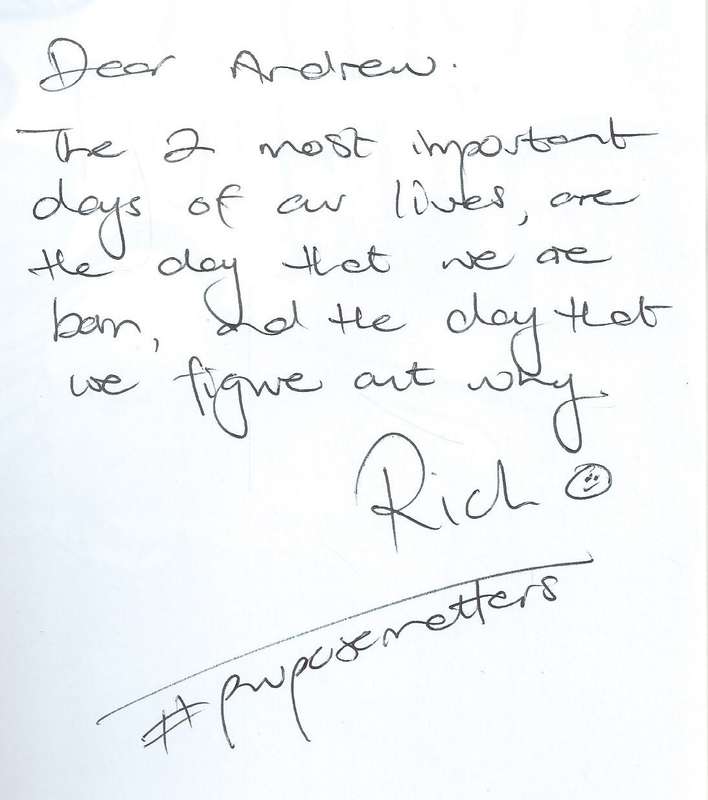 Dear Andrew.
The 2 most important
days of our lives, are
the day that we are
born, and the day that
we figure out why.
Rich
#purposematters